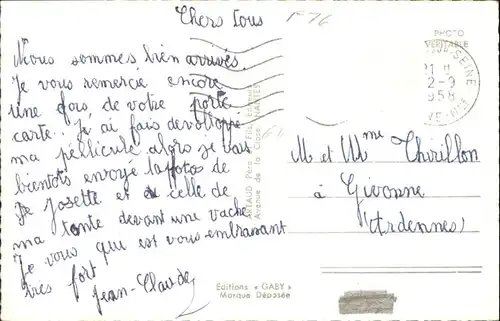 Chers tous
F76
Nous sommes bien arrivés.
Je vous remercie encore
une fois de votre porte
carte. J'ai fais développé
ma péllicule alors je vais
bientots envoyé la fotos de
Je Josette et celle de
ma tante devant une vache
Je vous qui est vous embrassant
très fort Jean-Claude
PHOTO
VERITABLE
SEINE
21 H
2-9
1958
ARTAUD Père et Fils, Editeurs
Avenue de la Close NANTES
M et Mme Thirillon
à Givonne
(Ardennes)
Editions « GABY »
Marque Déposée